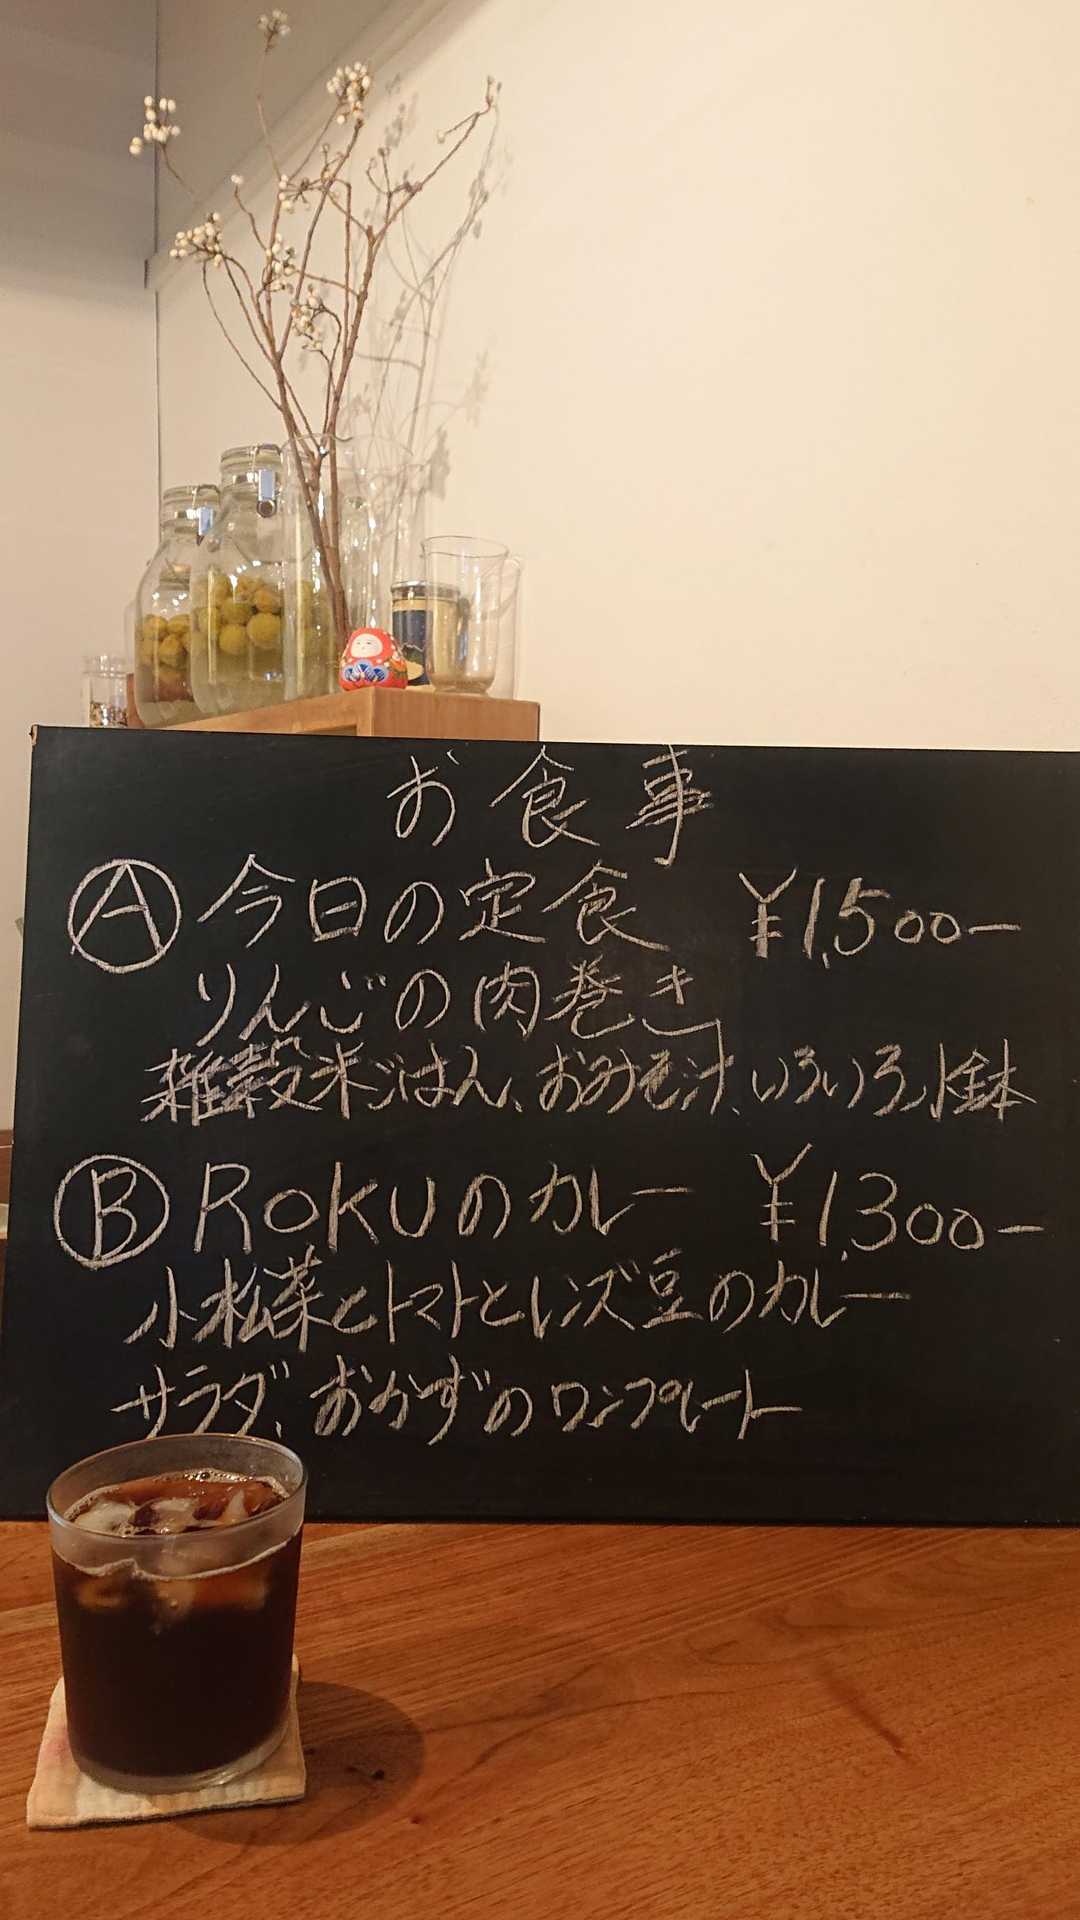 お食事
Ⓐ今日の定食 ¥1,500-
りんごの肉巻き
雑穀米ごはん、おみそ汁、いろいろ小鉢
Ⓑ ROKUのカレー ¥1,300-
小松菜とトマトとレンズ豆のカレー
サラダ、おかずのワンプレート